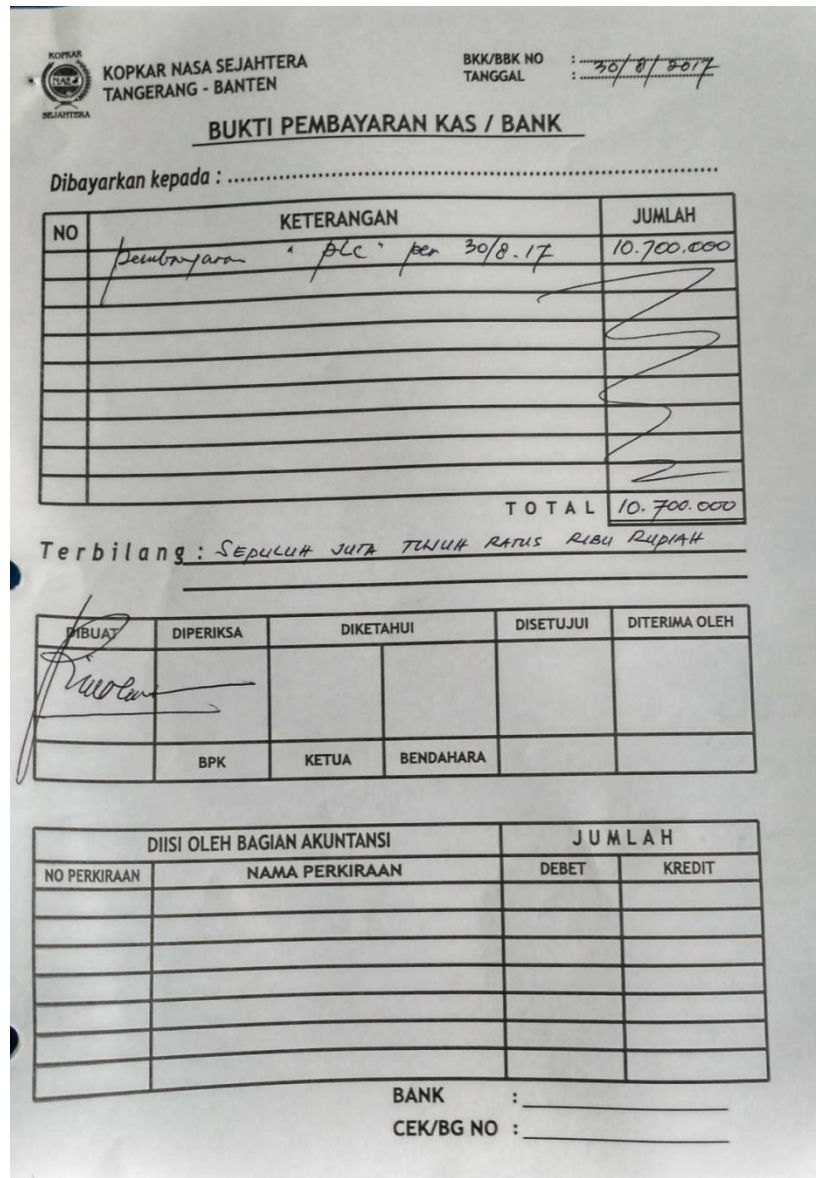 KOPKAR
NASA
SEJAHTERA
KOPKAR NASA SEJAHTERA
TANGERANG - BANTEN
BKK/BBK NO :
TANGGAL : 30/8/2017
BUKTI PEMBAYARAN KAS / BANK
Dibayarkan kepada :
NO KETERANGAN JUMLAH
pembayaran " PLC " per 30/8.17 10.700.000
TOTAL 10.700.000
Terbilang : SEPULUH JUTA TUJUH RATUS RIBU RUPIAH
DIBUAT DIPERIKSA DIKETAHUI DISETUJUI DITERIMA OLEH
BPK KETUA BENDAHARA
DIISI OLEH BAGIAN AKUNTANSI JUMLAH
NO PERKIRAAN NAMA PERKIRAAN DEBET KREDIT
BANK :
CEK/BG NO :